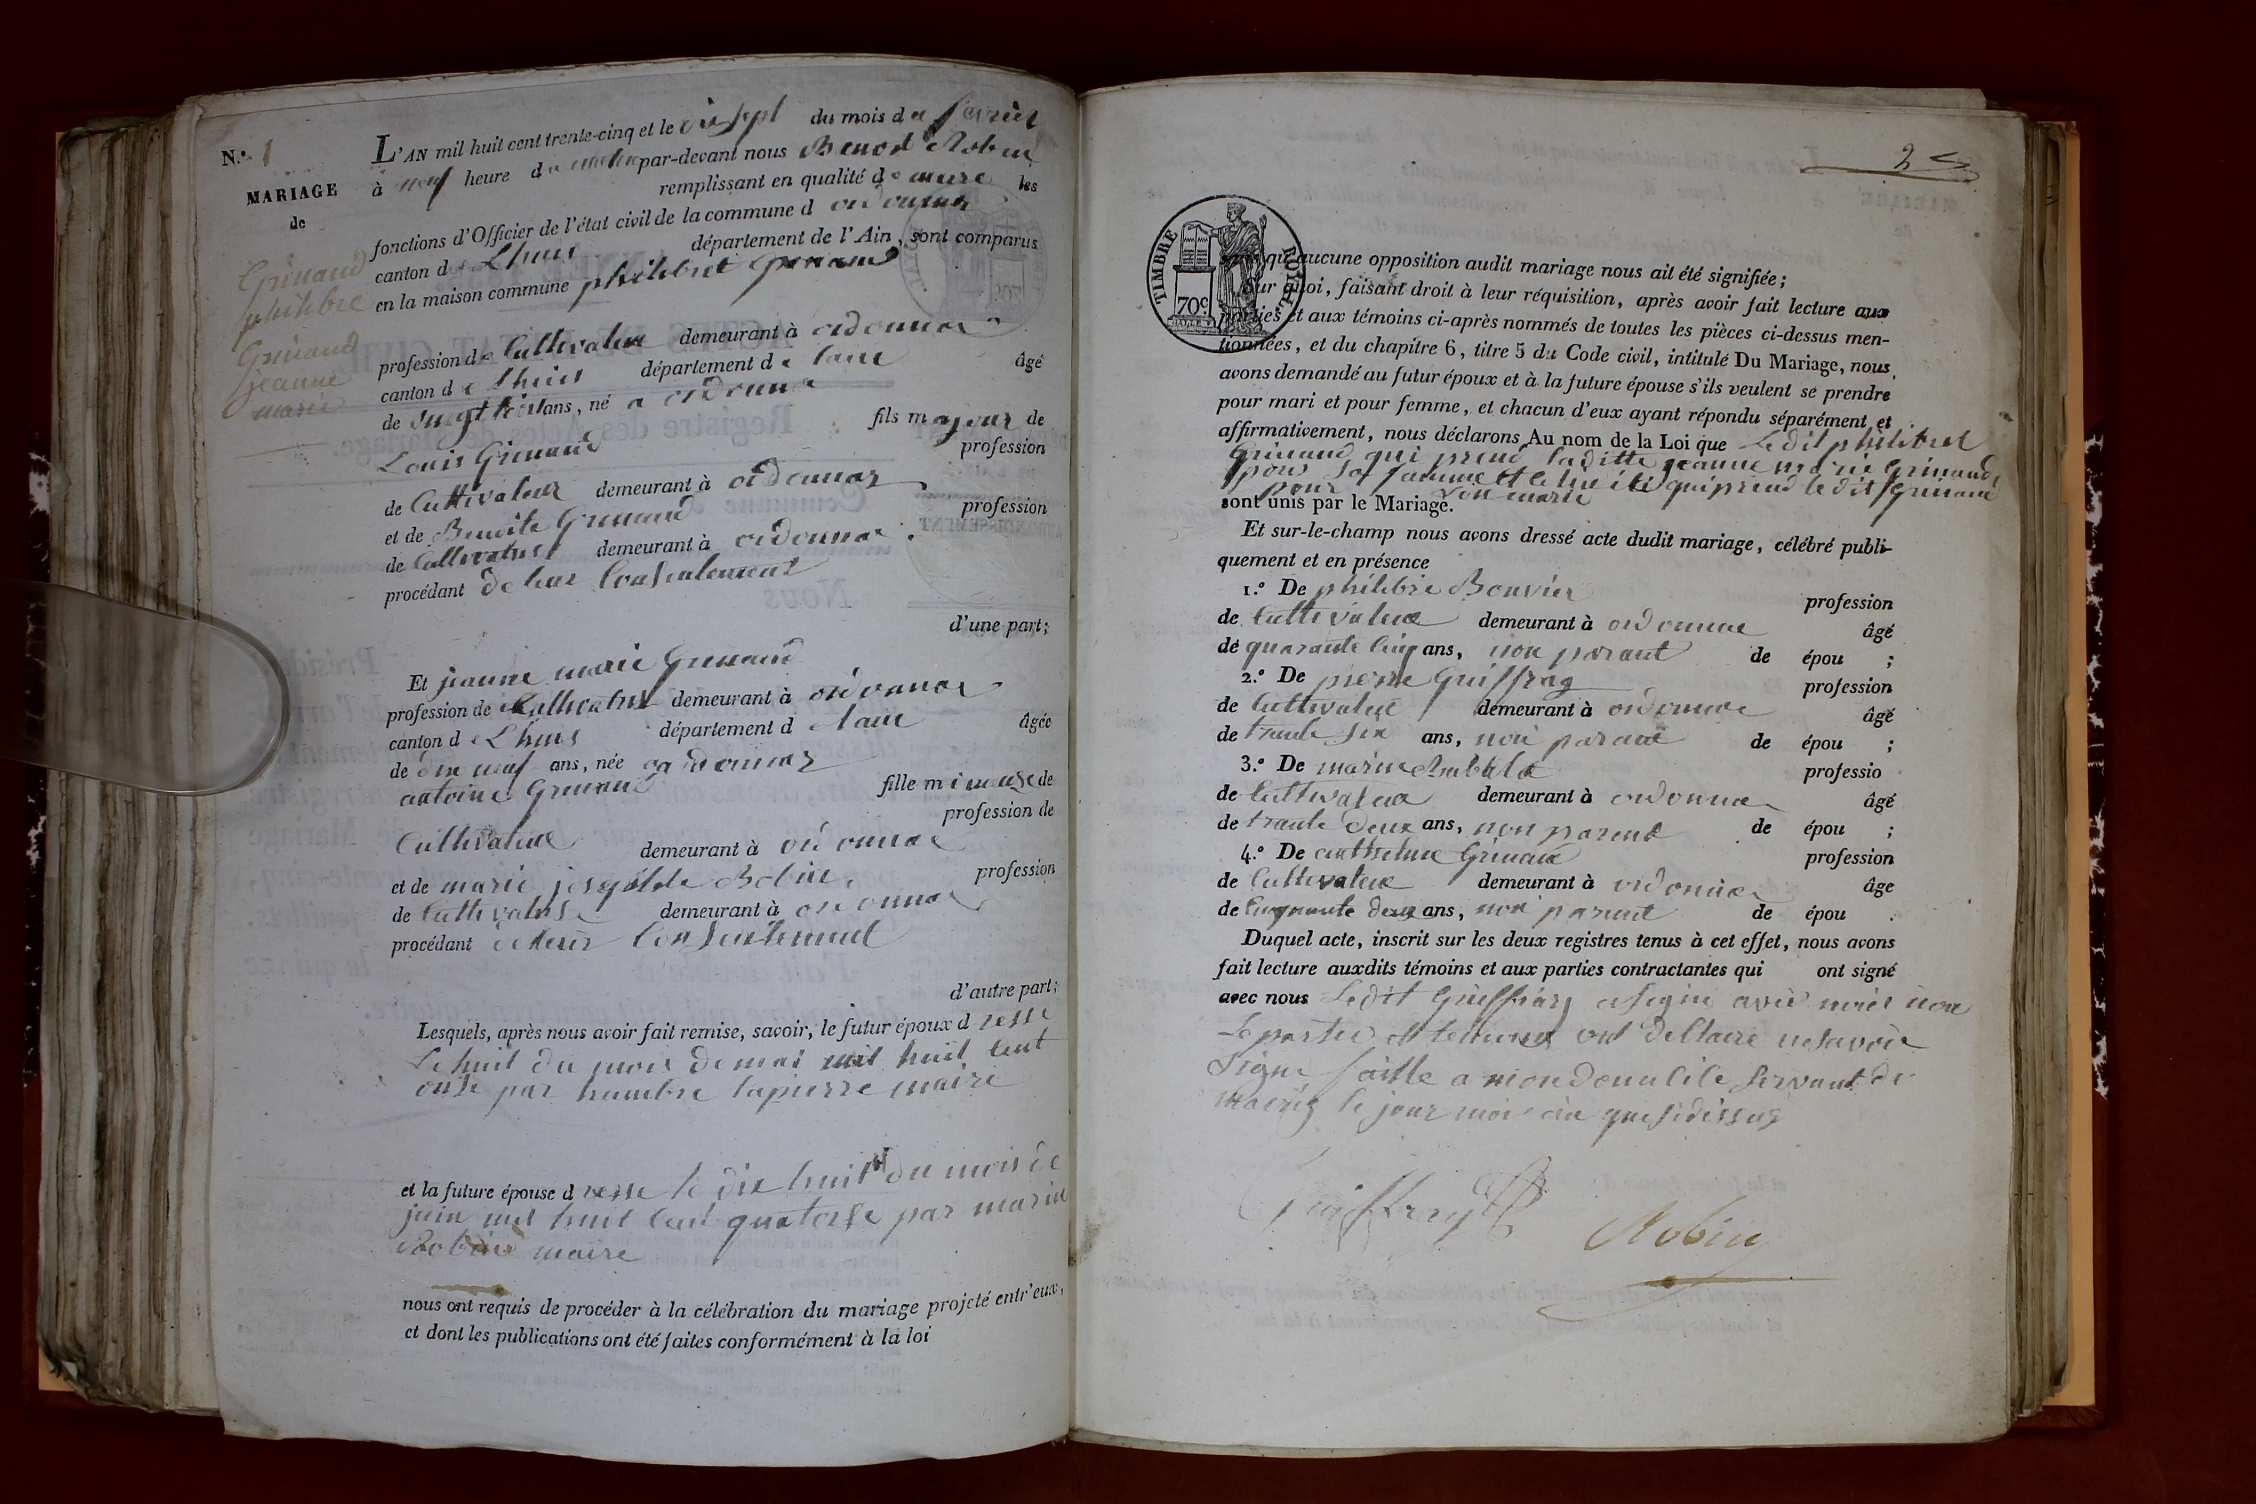 N.º 1
MARIAGE
de
Grinand
philibre
Grinand
jeanne
marie
L'AN mil huit cent trente-cinq et le dix sept du mois de fevrier
à neuf heure du matin par-devant nous Benoit Robin
remplissant en qualité de maire les
fonctions d'Officier de l'état civil de la commune d ordonnaz
canton de Lhuis département de l'Ain, sont comparus
en la maison commune philibret Grinand
profession de Cultivateur demeurant à ordonnaz
canton de Lhuis département de lain âgé
de vingt trois ans, né a ordonnaz
fils majeur de
Louis Grinand profession
de Cultivateur demeurant à ordonnaz
et de Benoite Grinand profession
de Cultivatrise demeurant à ordonnaz
procédant de leur Consentement
d'une part;
Et jeanne marie Grinand
profession de Cultivatrise demeurant à ordonnaz
canton de Lhuis département d elain âgée
de dix neuf ans, née a ordonnaz
fille mineure de
antoine Grinand profession de
Cultivateur demeurant à ordonnaz
et de marie josephte Robin profession
de Cultivatrise demeurant à ordonnaz
procédant deleur Consentement
d'autre part;
Lesquels, après nous avoir fait remise, savoir, le futur époux d resse
Le huit du mois de mai mil huit cent
onse par humbre lapierre maire
et la future épouse d resse le dix huit du mois de
juin mil huit cent quatorse par marin
Robin maire
nous ont requis de procéder à la célébration du mariage projeté entr'eux,
et dont les publications ont été faites conformément à la loi
2
TIMBRE ROYAL
70c
qu'aucune opposition audit mariage nous ait été signifiée;
Sur quoi, faisant droit à leur réquisition, après avoir fait lecture aux
parties et aux témoins ci-après nommés de toutes les pièces ci-dessus men-
tionnées, et du chapitre 6, titre 5 du Code civil, intitulé Du Mariage, nous
avons demandé au futur époux et à la future épouse s'ils veulent se prendre
pour mari et pour femme, et chacun d'eux ayant répondu séparément et
affirmativement, nous déclarons Au nom de la Loi que Ledit philibret
Grinand qui prend laditte jeanne marie Grinand
pour sa famme et qui prend le dit Grinand
pour son marie
sont unis par le Mariage.
Et sur-le-champ nous avons dressé acte dudit mariage, célébré publi-
quement et en présence
1.º De philibre Bouvier profession
de Cultivateur demeurant à ordonnaz âgé
de quarante cinq ans, non parant de épou ;
2.º De pierre Guiffray profession
de Cultivateur demeurant à ordonnaz âgé
de trante six ans, non parant de épou ;
3.º De marin professio
de Cultivateur demeurant à ordonnaz âgé
de trante deux ans, non parent de épou ;
4.º De anthelme Grinand profession
de Cultivateur demeurant à ordonnaz âge
de cinquante deux ans, non parent de épou .
Duquel acte, inscrit sur les deux registres tenus à cet effet, nous avons
fait lecture auxdits témoins et aux parties contractantes qui ont signé
avec nous Ledit Guiffray a signe avec
Le partie et temoins ont declaire nesavoir
signe faitte a mon domilile servant de
mairiz le jour moi an que sidessus
Guiffray
Robin